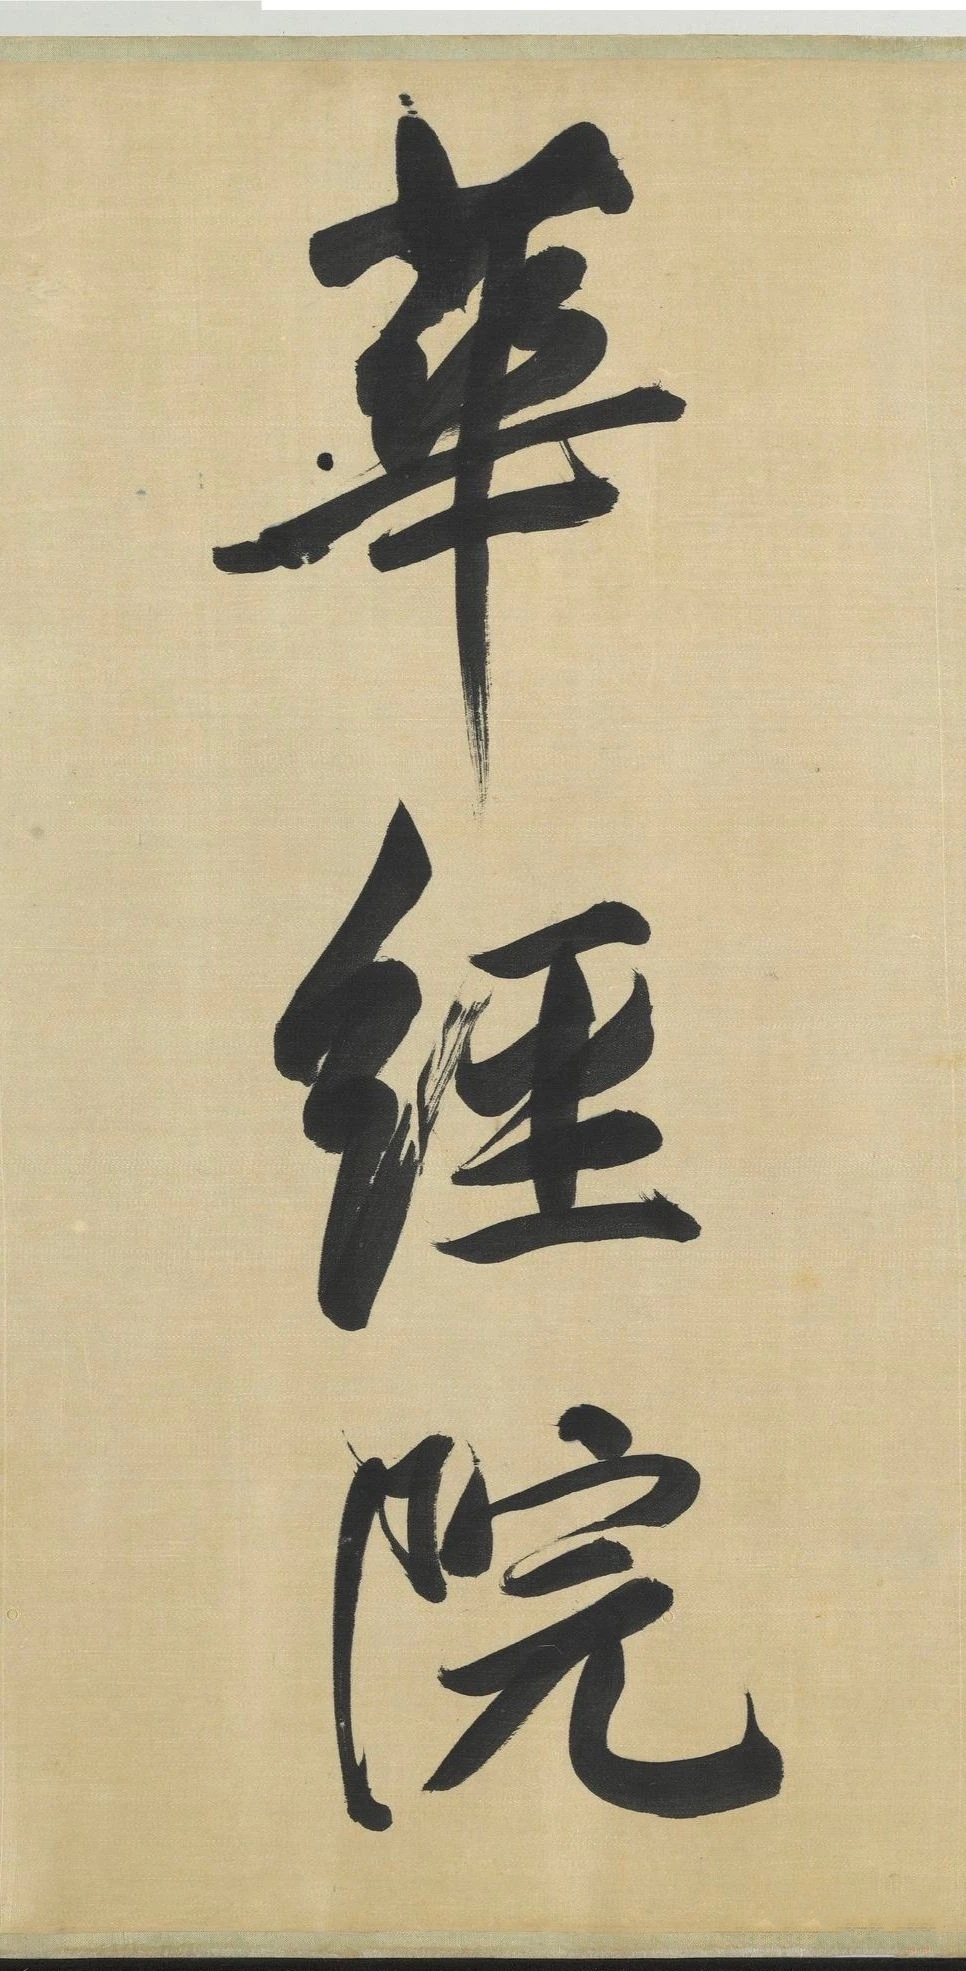 華經院